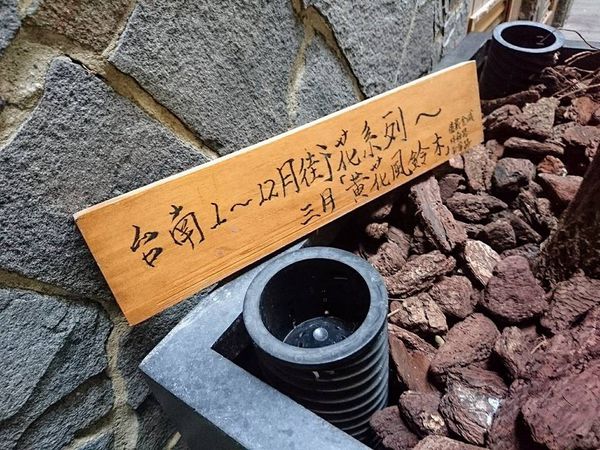 台南1～12月街花系列～
三月「黃花風鈴木」